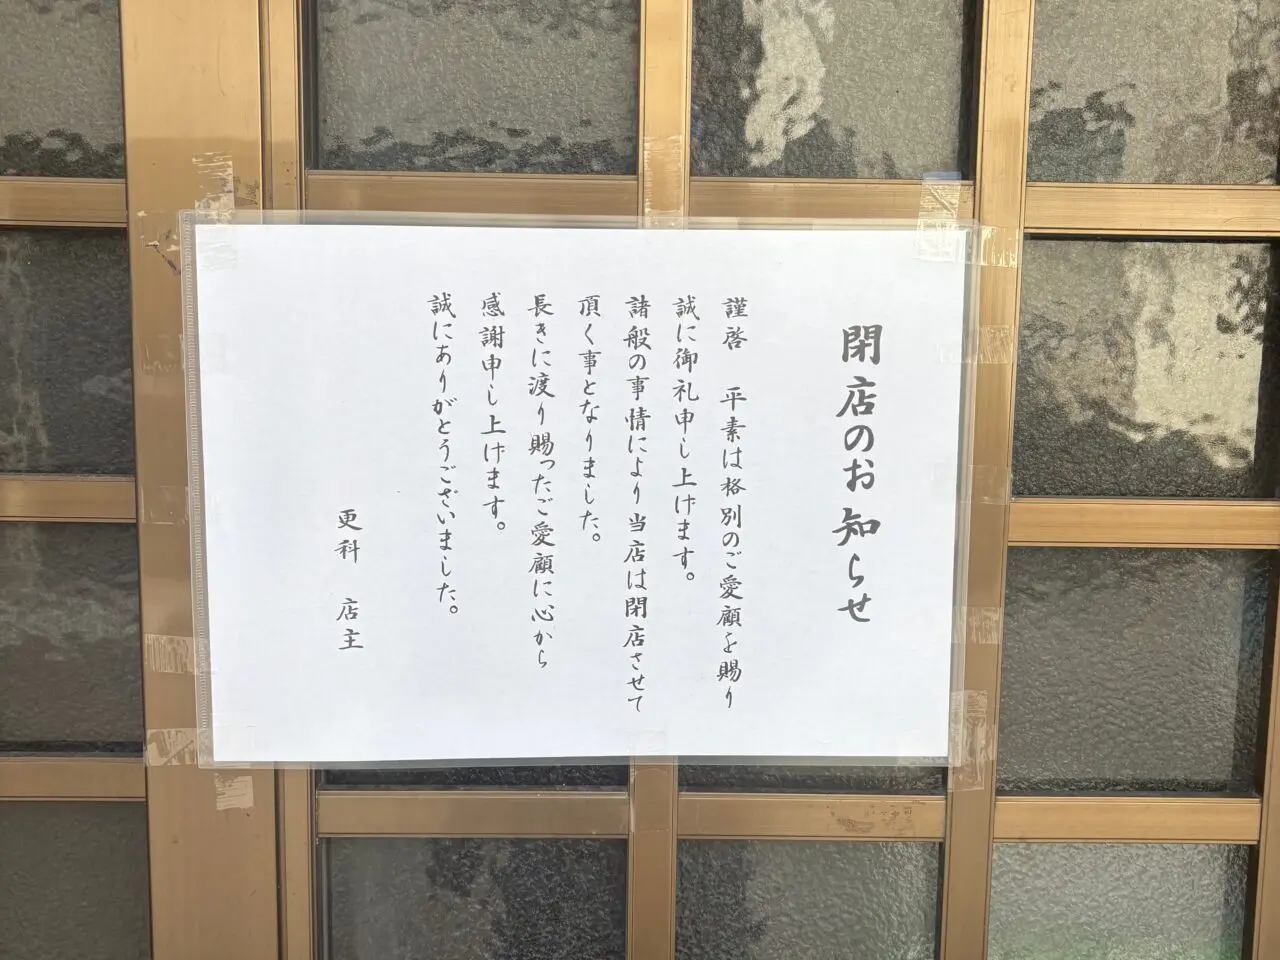 閉店のお知らせ
謹啓　平素は格別のご愛顧を賜り
誠に御礼申し上げます。
諸般の事情により当店は閉店させて
頂く事となりました。
長きに渡り賜ったご愛顧に心から
感謝申し上げます。
誠にありがとうございました。
更科　店主